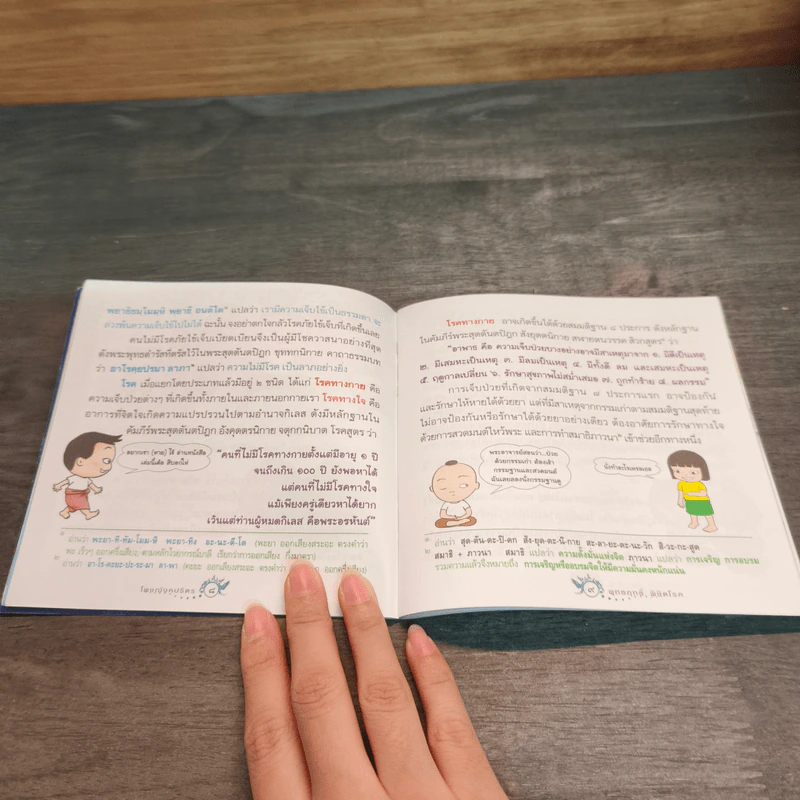 พยาธิธมฺโมมฺหิ พยาธิํ อนตีโต" แปลว่า เรามีความเจ็บไข้เป็นธรรมดา จะ
ล่วงพ้นความเจ็บไข้ไปไม่ได้ ฉะนั้น จงอย่าตกใจกลัวโรคภัยไข้เจ็บที่เกิดขึ้นเลย
คนไม่มีโรคภัยไข้เจ็บเบียดเบียนจึงเป็นผู้มีโชควาสนาอย่างที่สุด
ดังพระพุทธดำรัสที่ตรัสไว้ในพระสุตตันตปิฎก ขุททกนิกาย คาถาธรรมบท
ว่า อาโรคฺยปรมา ลาภา" แปลว่า ความไม่มีโรค เป็นลาภอย่างยิ่ง
โรค เมื่อแยกโดยประเภทแล้วมีอยู่ ๒ ชนิด ได้แก่ โรคทางกาย คือ
ความเจ็บป่วยต่างๆ ที่เกิดขึ้นทั้งภายในและภายนอกกายเรา โรคทางใจ คือ
อาการที่จิตใจเกิดความแปรปรวนไปตามอำนาจกิเลส ดังมีหลักฐานใน
คัมภีร์พระสุตตันตปิฎก อังคุตตรนิกาย จตุกกนิบาต โรคสูตร ว่า
"คนที่ไม่มีโรคทางกายตั้งแต่มีอายุ ๑ ปี
จนถึงเกิน ๑๐๐ ปี ยังพอหาได้
แต่คนที่ไม่มีโรคทางใจ
แม้เพียงครู่เดียวหาได้ยาก
เว้นแต่ท่านผู้หมดกิเลส คือพระอรหันต์"
อยากเขา (หาย) ไข้ อ่านหนังสือ
เล่มนี้ต่อ สิบอกให้
๑ อ่านว่า พะยา-ทิ-ทัม-โมม-หิ พะยา-ทิง อะ-นะ-ตี-โต (พะยา ออกเสียงสระอะ ตรงคำว่า
พะ เร็วๆ ออกครึ่งเสียง ตามหลักไวยากรณ์บาลี เรียกว่าการออกเสียง กึ่งมาตรา)
๒ อ่านว่า อา-โร-คะยะ-ปะ-ระ-มา ลา-พา (คะยะ ออกเสียงตรงคำว่า ออกครึ่งเสียง)
๘
โรคทางกาย อาจเกิดขึ้นได้ด้วยสมมติฐาน ๘ ประการ ดังหลักฐาน
ในคัมภีร์พระสุตตันตปิฎก สังยุตตนิกาย สฬายตนวรรค สิวกสูตร" ว่า
"อาพาธ คือ ความเจ็บป่วยบางอย่างอาจมีสาเหตุมาจาก ๑. มีดีเป็นเหตุ
๒. มีเสมหะเป็นเหตุ ๓. มีลมเป็นเหตุ ๔. มีทั้งดี ลม และเสมหะเป็นเหตุ
๕. ฤดูกาลเปลี่ยน ๖. รักษาสุขภาพไม่สม่ำเสมอ ๗. ถูกทำร้าย ๘. ผลกรรม"
การเจ็บป่วยที่เกิดจากสมมติฐาน ๗ ประการแรก อาจป้องกัน
และรักษาให้หายได้ด้วยยา แต่ที่มีสาเหตุจากกรรมเก่าตามสมมติฐานสุดท้าย
ไม่อาจป้องกันหรือรักษาได้ด้วยยาอย่างเดียว ต้องอาศัยการรักษาทางใจ
ด้วยการสวดมนต์ไหว้พระ และการทำสมาธิภาวนา" เข้าช่วยอีกทางหนึ่ง
พระอาจารย์สอนว่า..ป่วย
ด้วยกรรมเก่า ต้องเข้า
กรรมฐานและสวดมนต์
ฉันเลยลองนั่งกรรมฐานดู
๑ อ่านว่า สุด-ตัน-ตะ-ปิ-ดก สัง-ยุด-ตะ-นิ-กาย สะ-ลา-ยะ-ตะ-นะ-วัก สิ-วะ-กะ-สูด
๒ สมาธิ + ภาวนา สมาธิ แปลว่า ความตั้งมั่นแห่งจิต ภาวนา แปลว่า การเจริญ การอบรม
รวมความแล้วจึงหมายถึง การเจริญหรืออบรมจิตให้มีความมั่นคงหนักแน่น
๙ พุทธฤทธิ์ พิชิตโรค